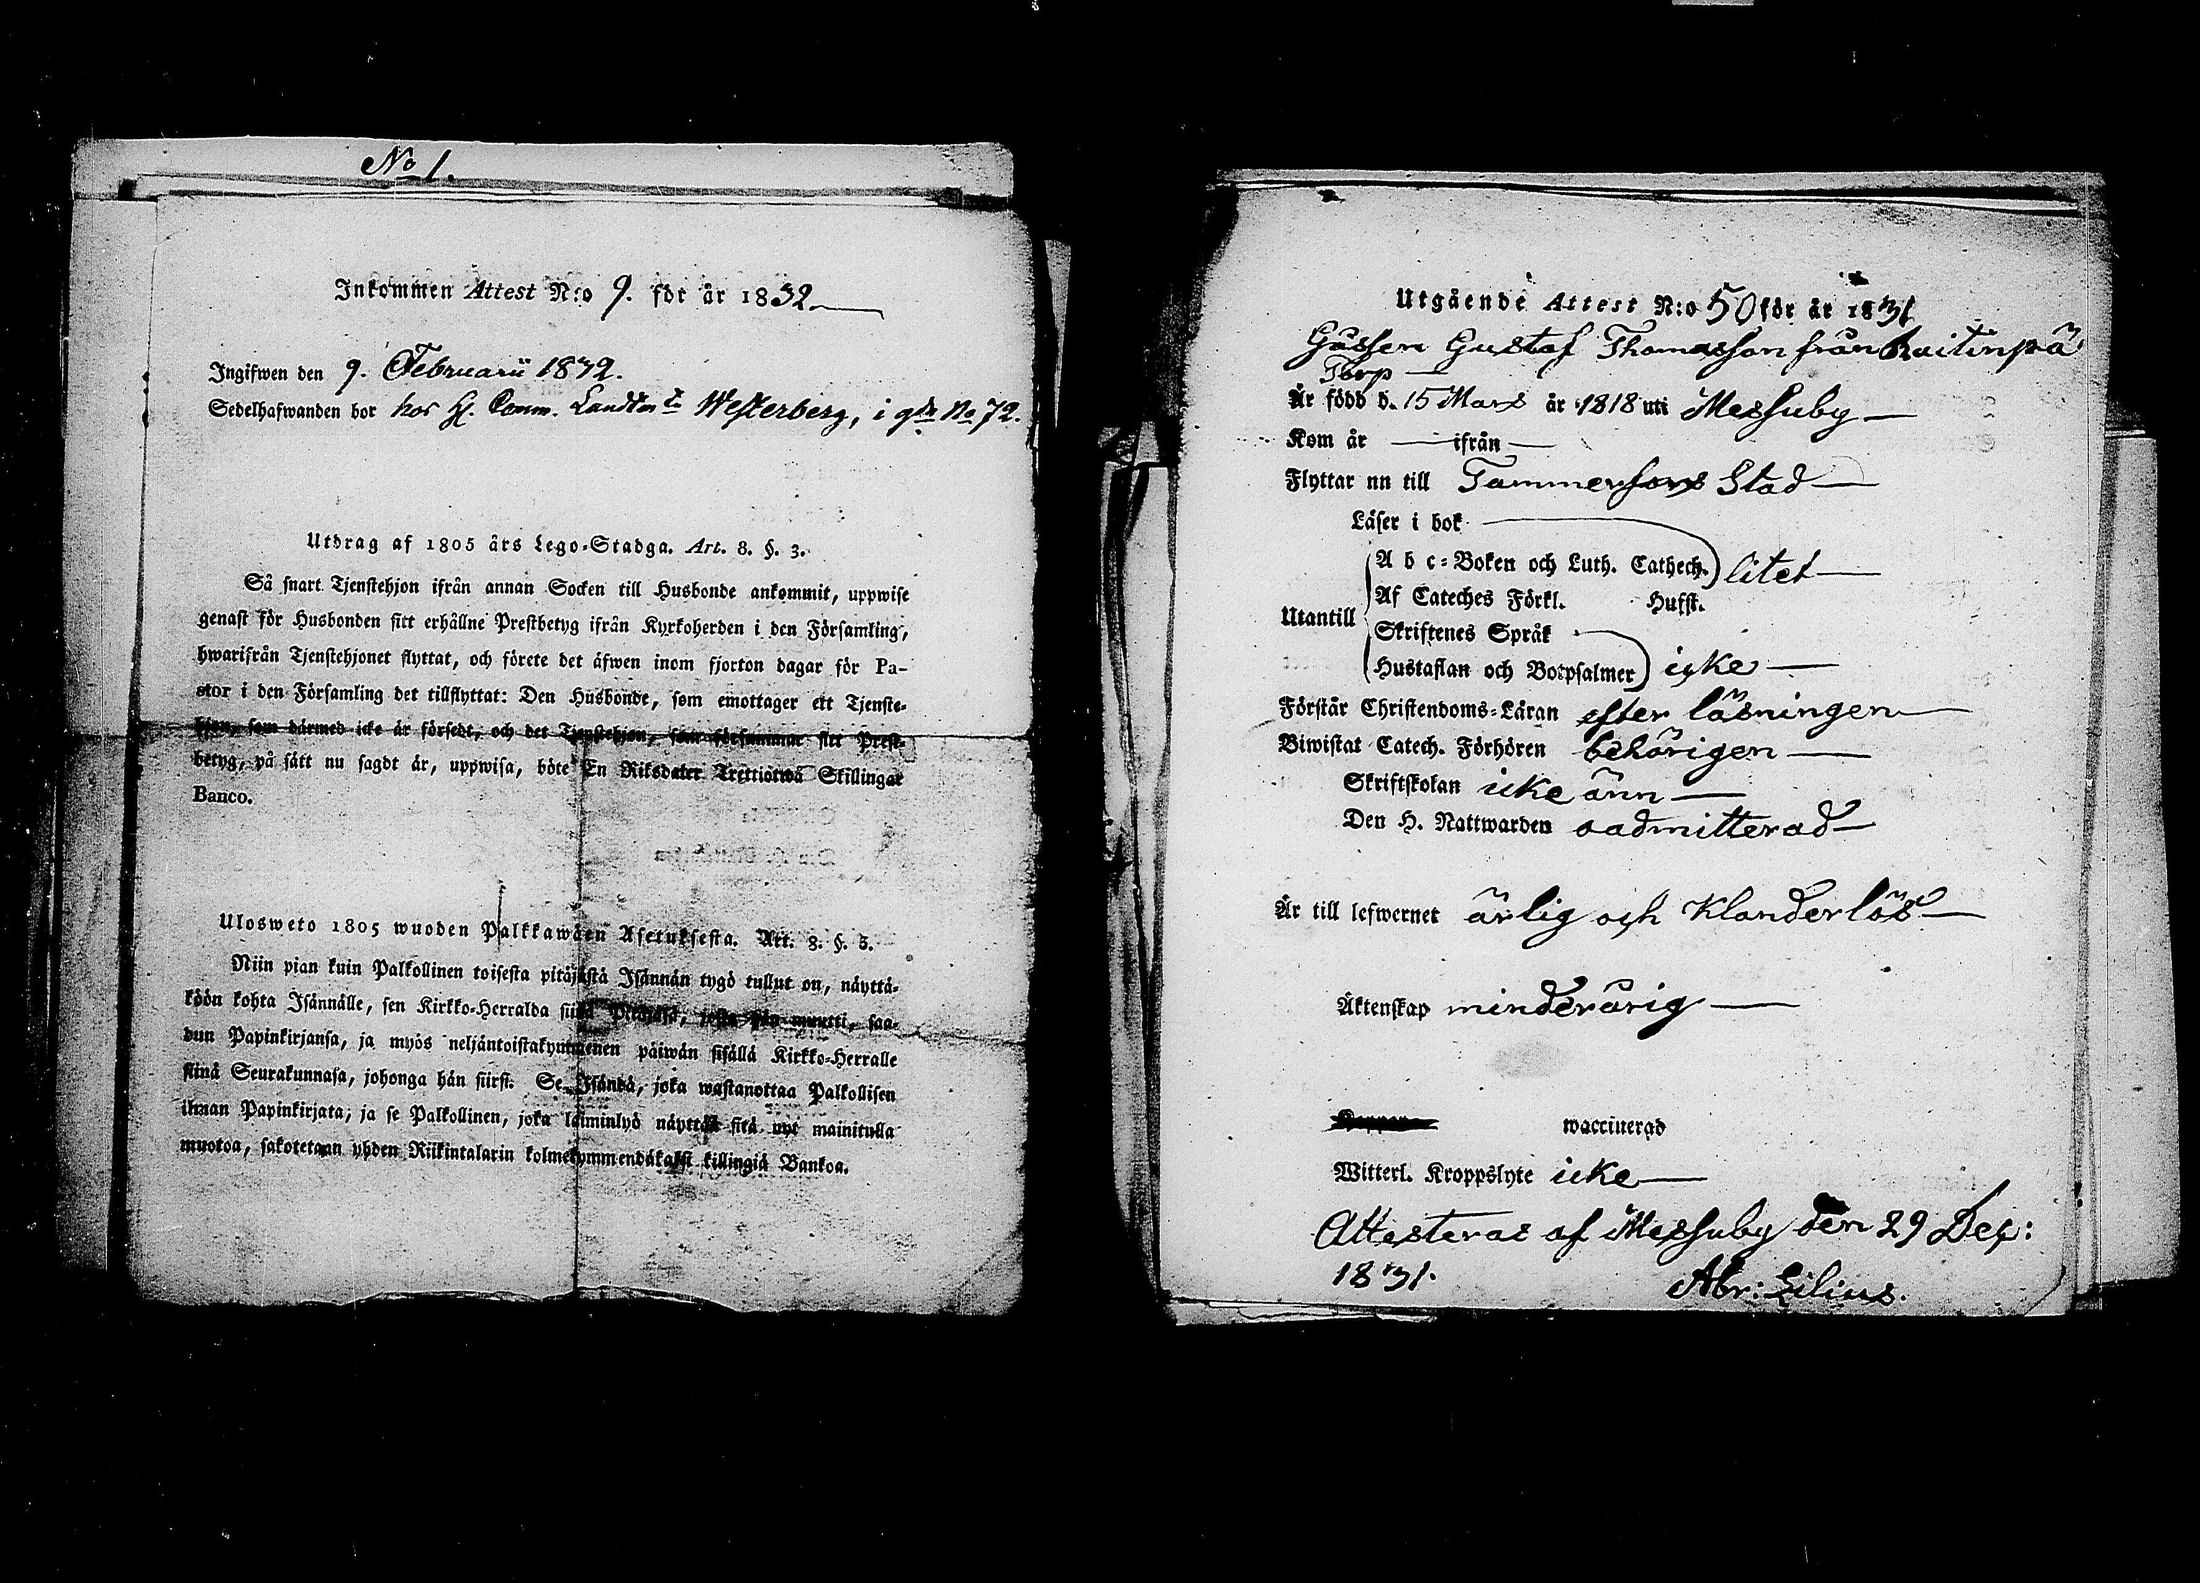 No 1.
Inkommen Attest N:o 9. för år 1832
Ingifwen den 9. Februarii 1832.
Sedelhafwanden bor hos H. Comm. Landtm:t Westerberg, i gdn No 72.
Utdrag af 1805 års Lego-Stadga. Art. 8. §. 3.
Så snart Tjenstehjon ifrån annan Socken till Husbonde ankommit, uppwise
genast för Husbonden sitt erhållne Prestbetyg ifrån Kyrkoherden i den Församling,
hwarifrån Tjenstehjonet flyttat, och förete det äfwen inom fjorton dagar för Pa-
stor i den Församling det tillflyttat: Den Husbonde, som emottager ett Tjenste-
hjon, som därmed icke är försedt, och det Tjenstehjon, som försummar sitt Prest-
betyg, på sätt nu sagdt är, uppwisa, böte En Riksdaler Trettiotwå Skillingar
Banco.
Ulosweto 1805 wuoden Palkkawäen Asetuksesta. Art. 8. §. 3.
Niin pian kuin Palkollinen toisesta pitäjästä Isännän tygö tullut on, näyttä-
köön kohta Isännälle, sen Kirkko-Herralda siinä Pitäjäsä, josta hän muutti, saa-
dun Papinkirjansa, ja myös neljäntoistakymmenen päiwän sisällä Kirkko-Herralle
siinä Seurakunnasa, johonga hän siirsi. Se Isändä, joka wastanottaa Palkollisen
ilman Papinkirjata, ja se Palkollinen, joka laiminlyö näyttää sitä nyt mainitulla
muotoa, sakotetaan yhden Riikintalarin kolmekymmendäkaksi killingiä Bankoa.
Utgående Attest N:o 50 för år 1831
Gåssen Gustaf Thomasson från Kaitinpä
Torp
Är född d. 15 Mars år 1818 uti Messuby
Kom år — ifrån —
Flyttar nu till Tammerfors Stad
Läser i bok
A b c-Boken och Luth. Cathech. litet
Af Cateches Förkl. Hufst.
Utantill
Skriftenes Språk
Hustaflan och Botpsalmer icke
Förstår Christendoms-Läran efter läsningen
Biwistat Catech. Förhören behörigen
Skriftskolan icke änn
Den H. Nattwarden oadmitterad
Är till lefwernet ärlig och Klanderlös
Äktenskap minderårig
waccinerad
Witterl. Kroppslyte icke
Attesteras af Messuby den 29 Dec:
1831. Abr: Lilius.